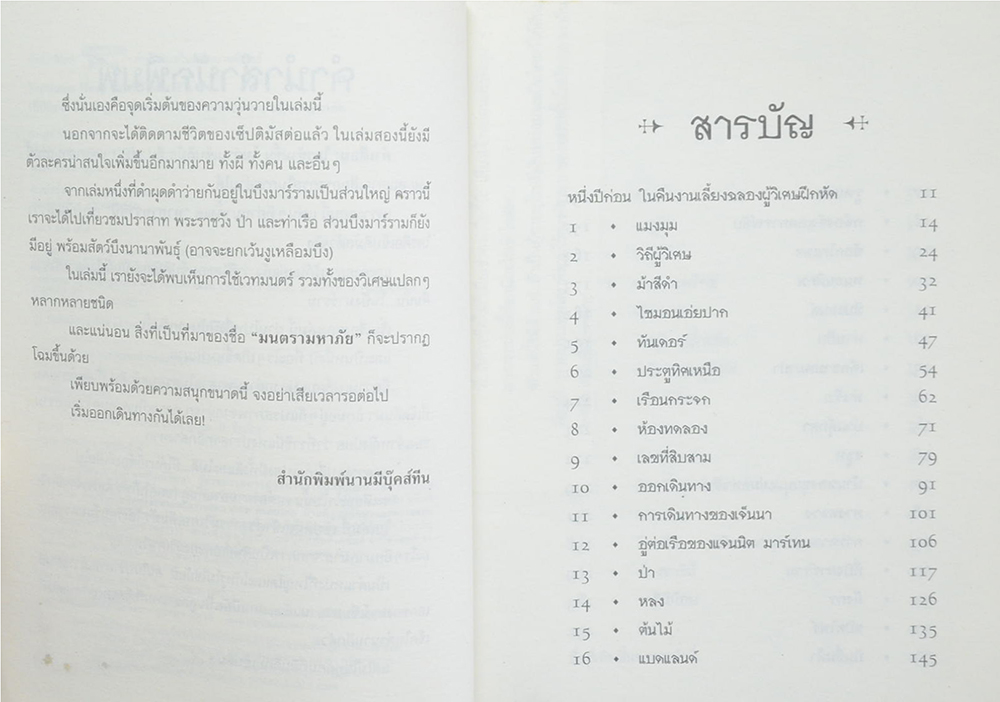 ซึ่งนั่นเองคือจุดเริ่มต้นของความวุ่นวายในเล่มนี้
นอกจากจะได้ติดตามชีวิตของเซ็ปติมัสต่อแล้ว ในเล่มสองนี้ยังมี
ตัวละครน่าสนใจเพิ่มขึ้นอีกมากมาย ทั้งผี ทั้งคน และอื่นๆ
จากเล่มหนึ่งที่ดำผุดดำว่ายกันอยู่ในบึงมาร์รามเป็นส่วนใหญ่ คราวนี้
เราจะได้ไปเที่ยวชมปราสาท พระราชวัง ป่า และท่าเรือ ส่วนบึงมาร์รามก็ยัง
มีอยู่ พร้อมสัตว์บึงนานาพันธุ์ (อาจจะยกเว้นงูเหลือมบึง)
ในเล่มนี้ เรายังจะได้พบเห็นการใช้เวทมนตร์ รวมทั้งของวิเศษแปลกๆ
หลากหลายชนิด
และแน่นอน สิ่งที่เป็นที่มาของชื่อ “มนตรามหาภัย” ก็จะปรากฏ
โฉมขึ้นด้วย
เพียบพร้อมด้วยความสนุกขนาดนี้ จงอย่าเสียเวลารอต่อไป
เริ่มออกเดินทางกันได้เลย!
สำนักพิมพ์นานมีบุ๊คส์ทีน
สารบัญ
หนึ่งปีก่อน ในคืนงานเลี้ยงฉลองผู้วิเศษฝึกหัด 11
1 • แมงมุม 14
2 • วิถีผู้วิเศษ 24
3 • ม้าสีดำ 32
4 • ไซมอนเอ่ยปาก 41
5 • ทันเดอร์ 47
6 • ประตูทิศเหนือ 54
7 • เรือนกระจก 62
8 • ห้องทดลอง 71
9 • เลขที่สิบสาม 79
10 • ออกเดินทาง 91
11 • การเดินทางของเจ็นนา 101
12 • อู่ต่อเรือของแจนนิต มาร์เทน 106
13 • ป่า 117
14 • หลง 126
15 • ต้นไม้ 135
16 • แบดแลนด์ 145